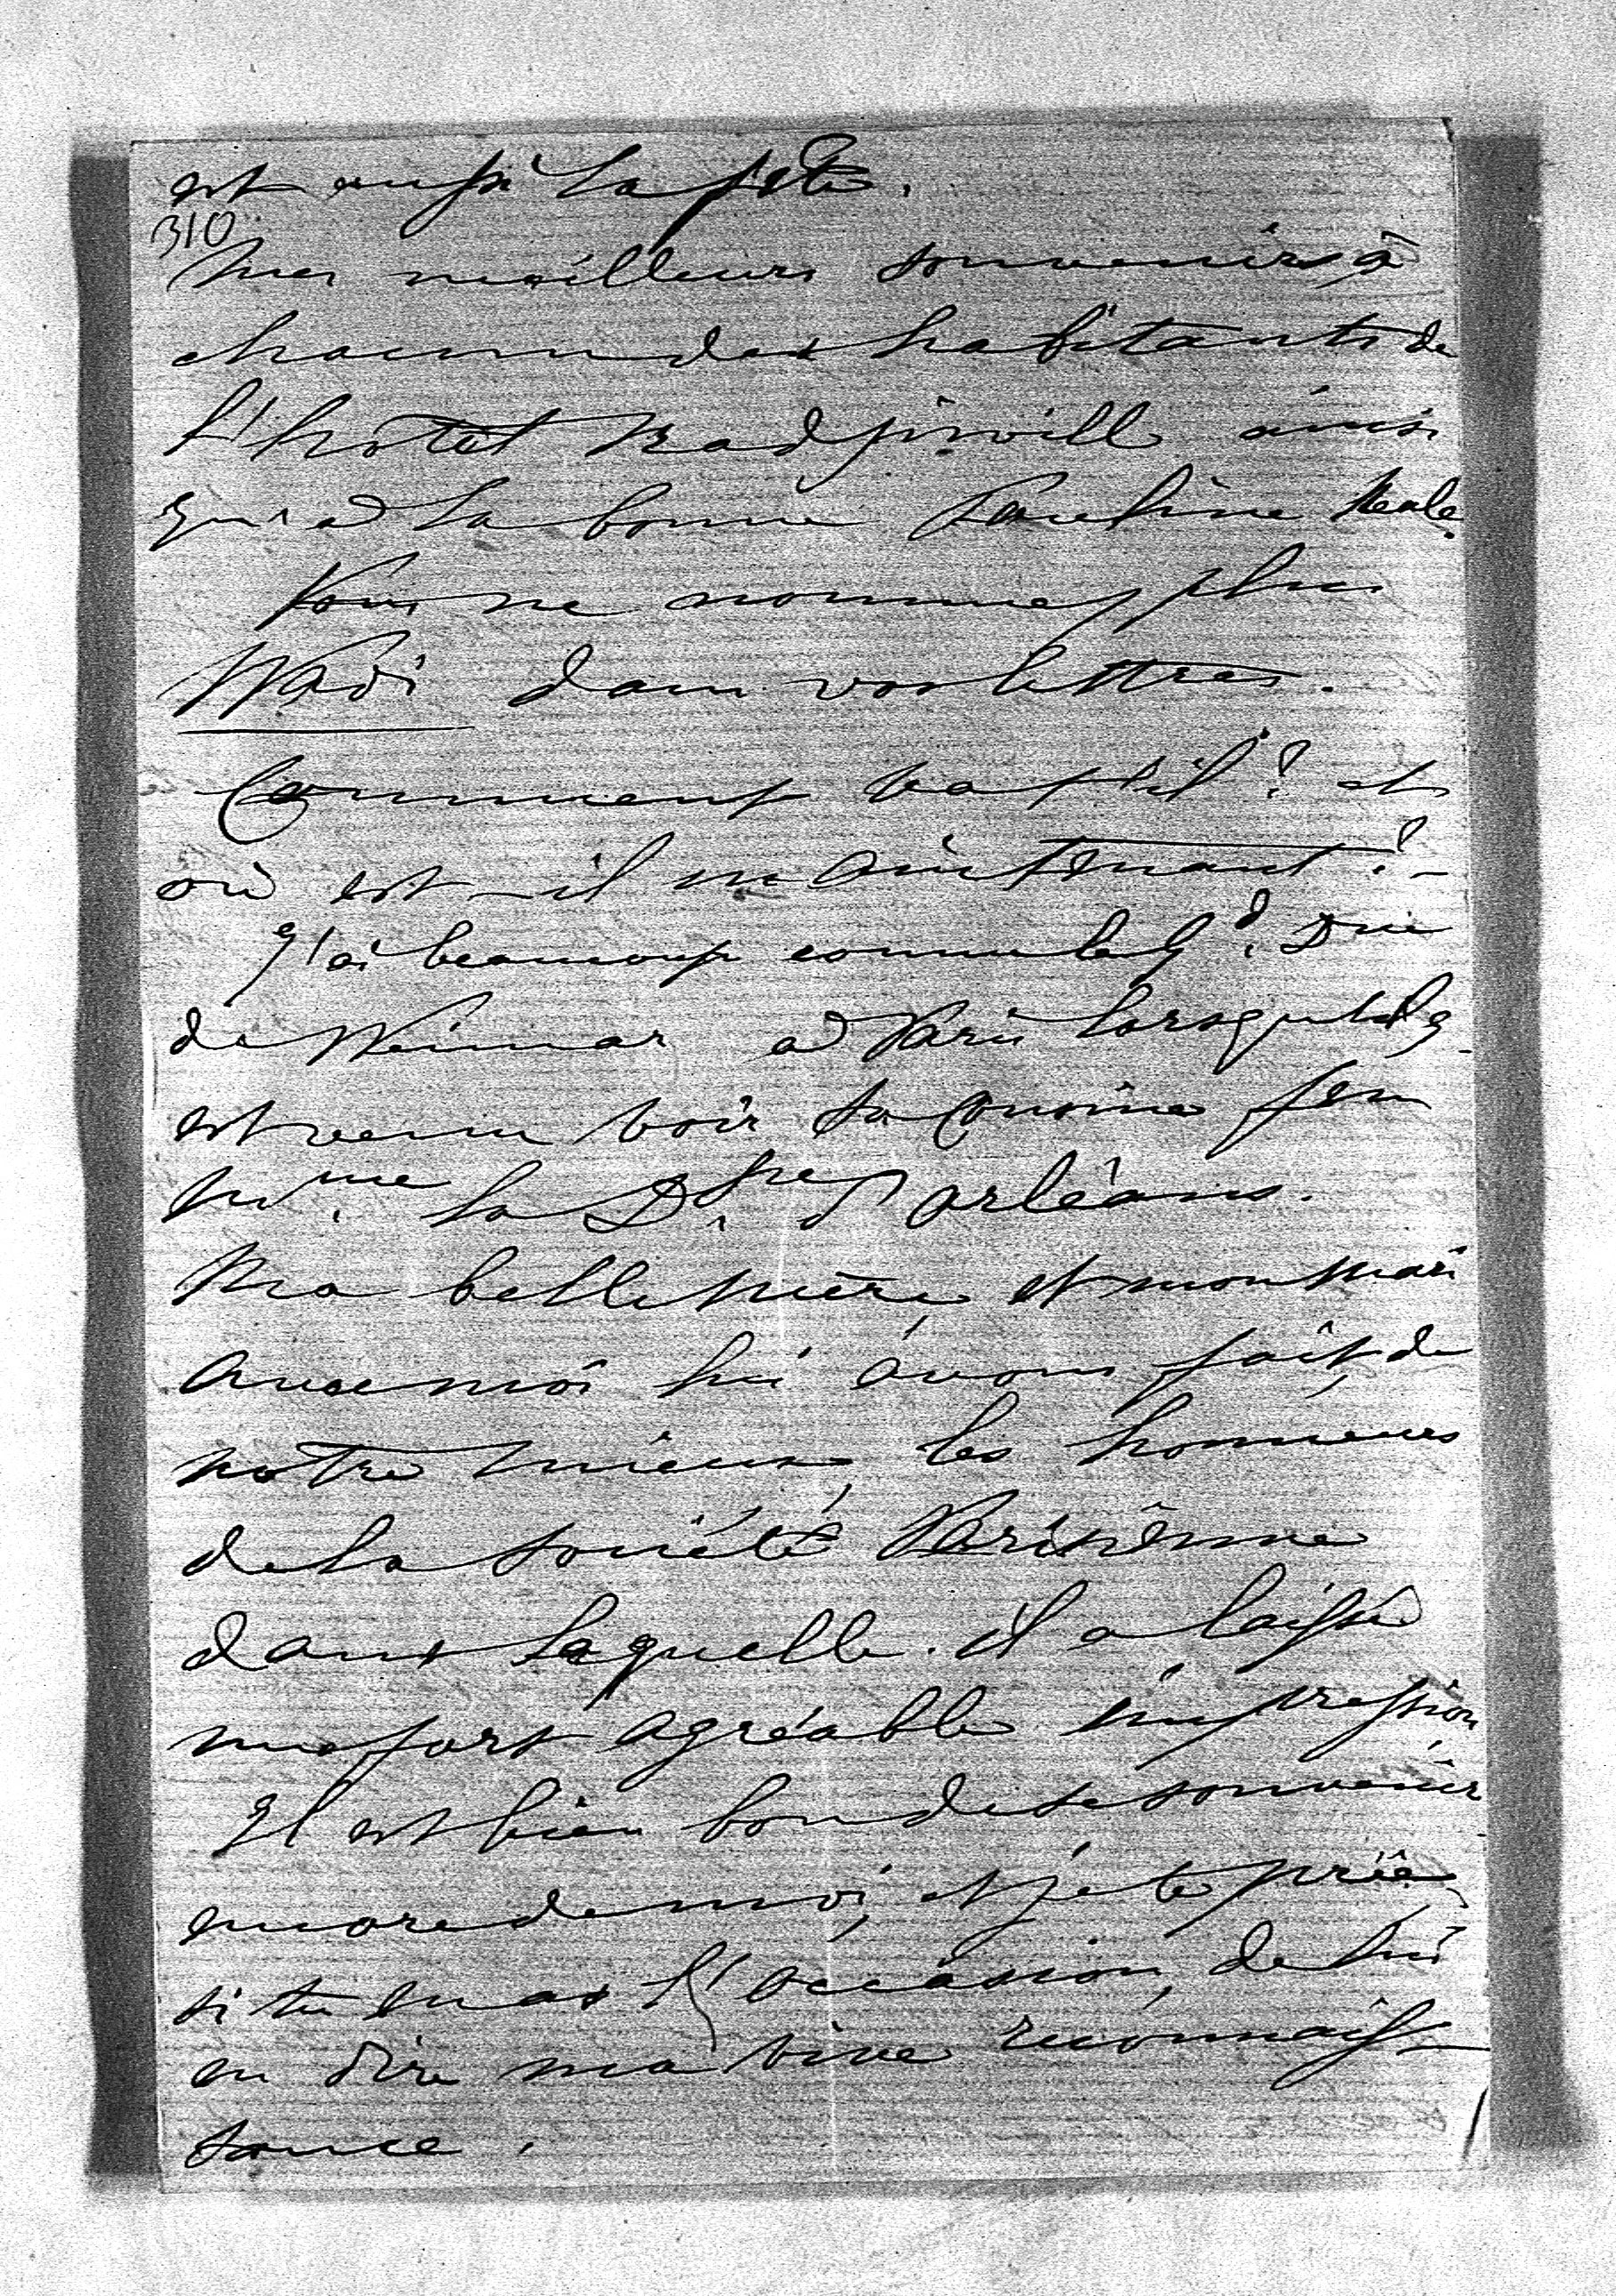 est aussi la fête.
310
Mes meilleurs souvenirs à
chacun des habitants de
l'hôtel Radziwill ainsi
qu'à la bonne Pauline Neale.
Vous ne nommez plus
Wadi dans vos lettres.
Comment va t'il? et
où est-il maintenant? -
J'ai beaucoup connu le gd. Duc
de Weimar à Paris lorsqu'il
est venu voir sa cousine feu
Mme la Dsse d'Orléans.
Ma belle mère, et mon mari
avec moi lui avons fait, de
notre mieux, les honneurs
de la société Parisienne
dans laquelle il a laissé
une fort agréable impression.
Il est bien bon de se souvenir
encore de moi, et je te prie,
si tu en as l'occasion, de lui
en dire ma vive reconnaiss-
sance.